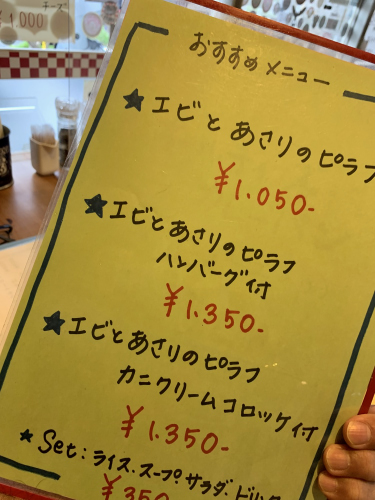 ¥1,000
おすすめメニュー
★エビとあさりのピラフ
¥1.050-
★エビとあさりのピラフ
ハンバーグ付
¥1.350-
★エビとあさりのピラフ
カニクリームコロッケ付
¥1.350-
★Set:ライス.スープ.サラダ.ドリンク
¥350